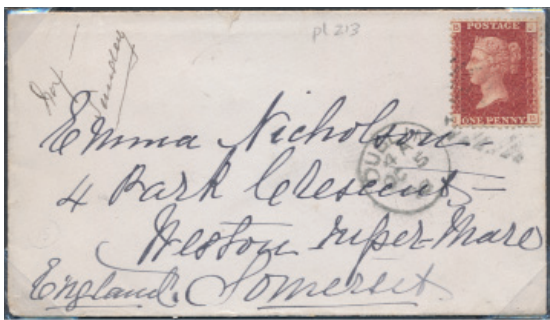 pl 213
POSTAGE
ONE PENNY
Emma Nicholson
4 Park Crescent
Weston super-Mare
England. Somerset.